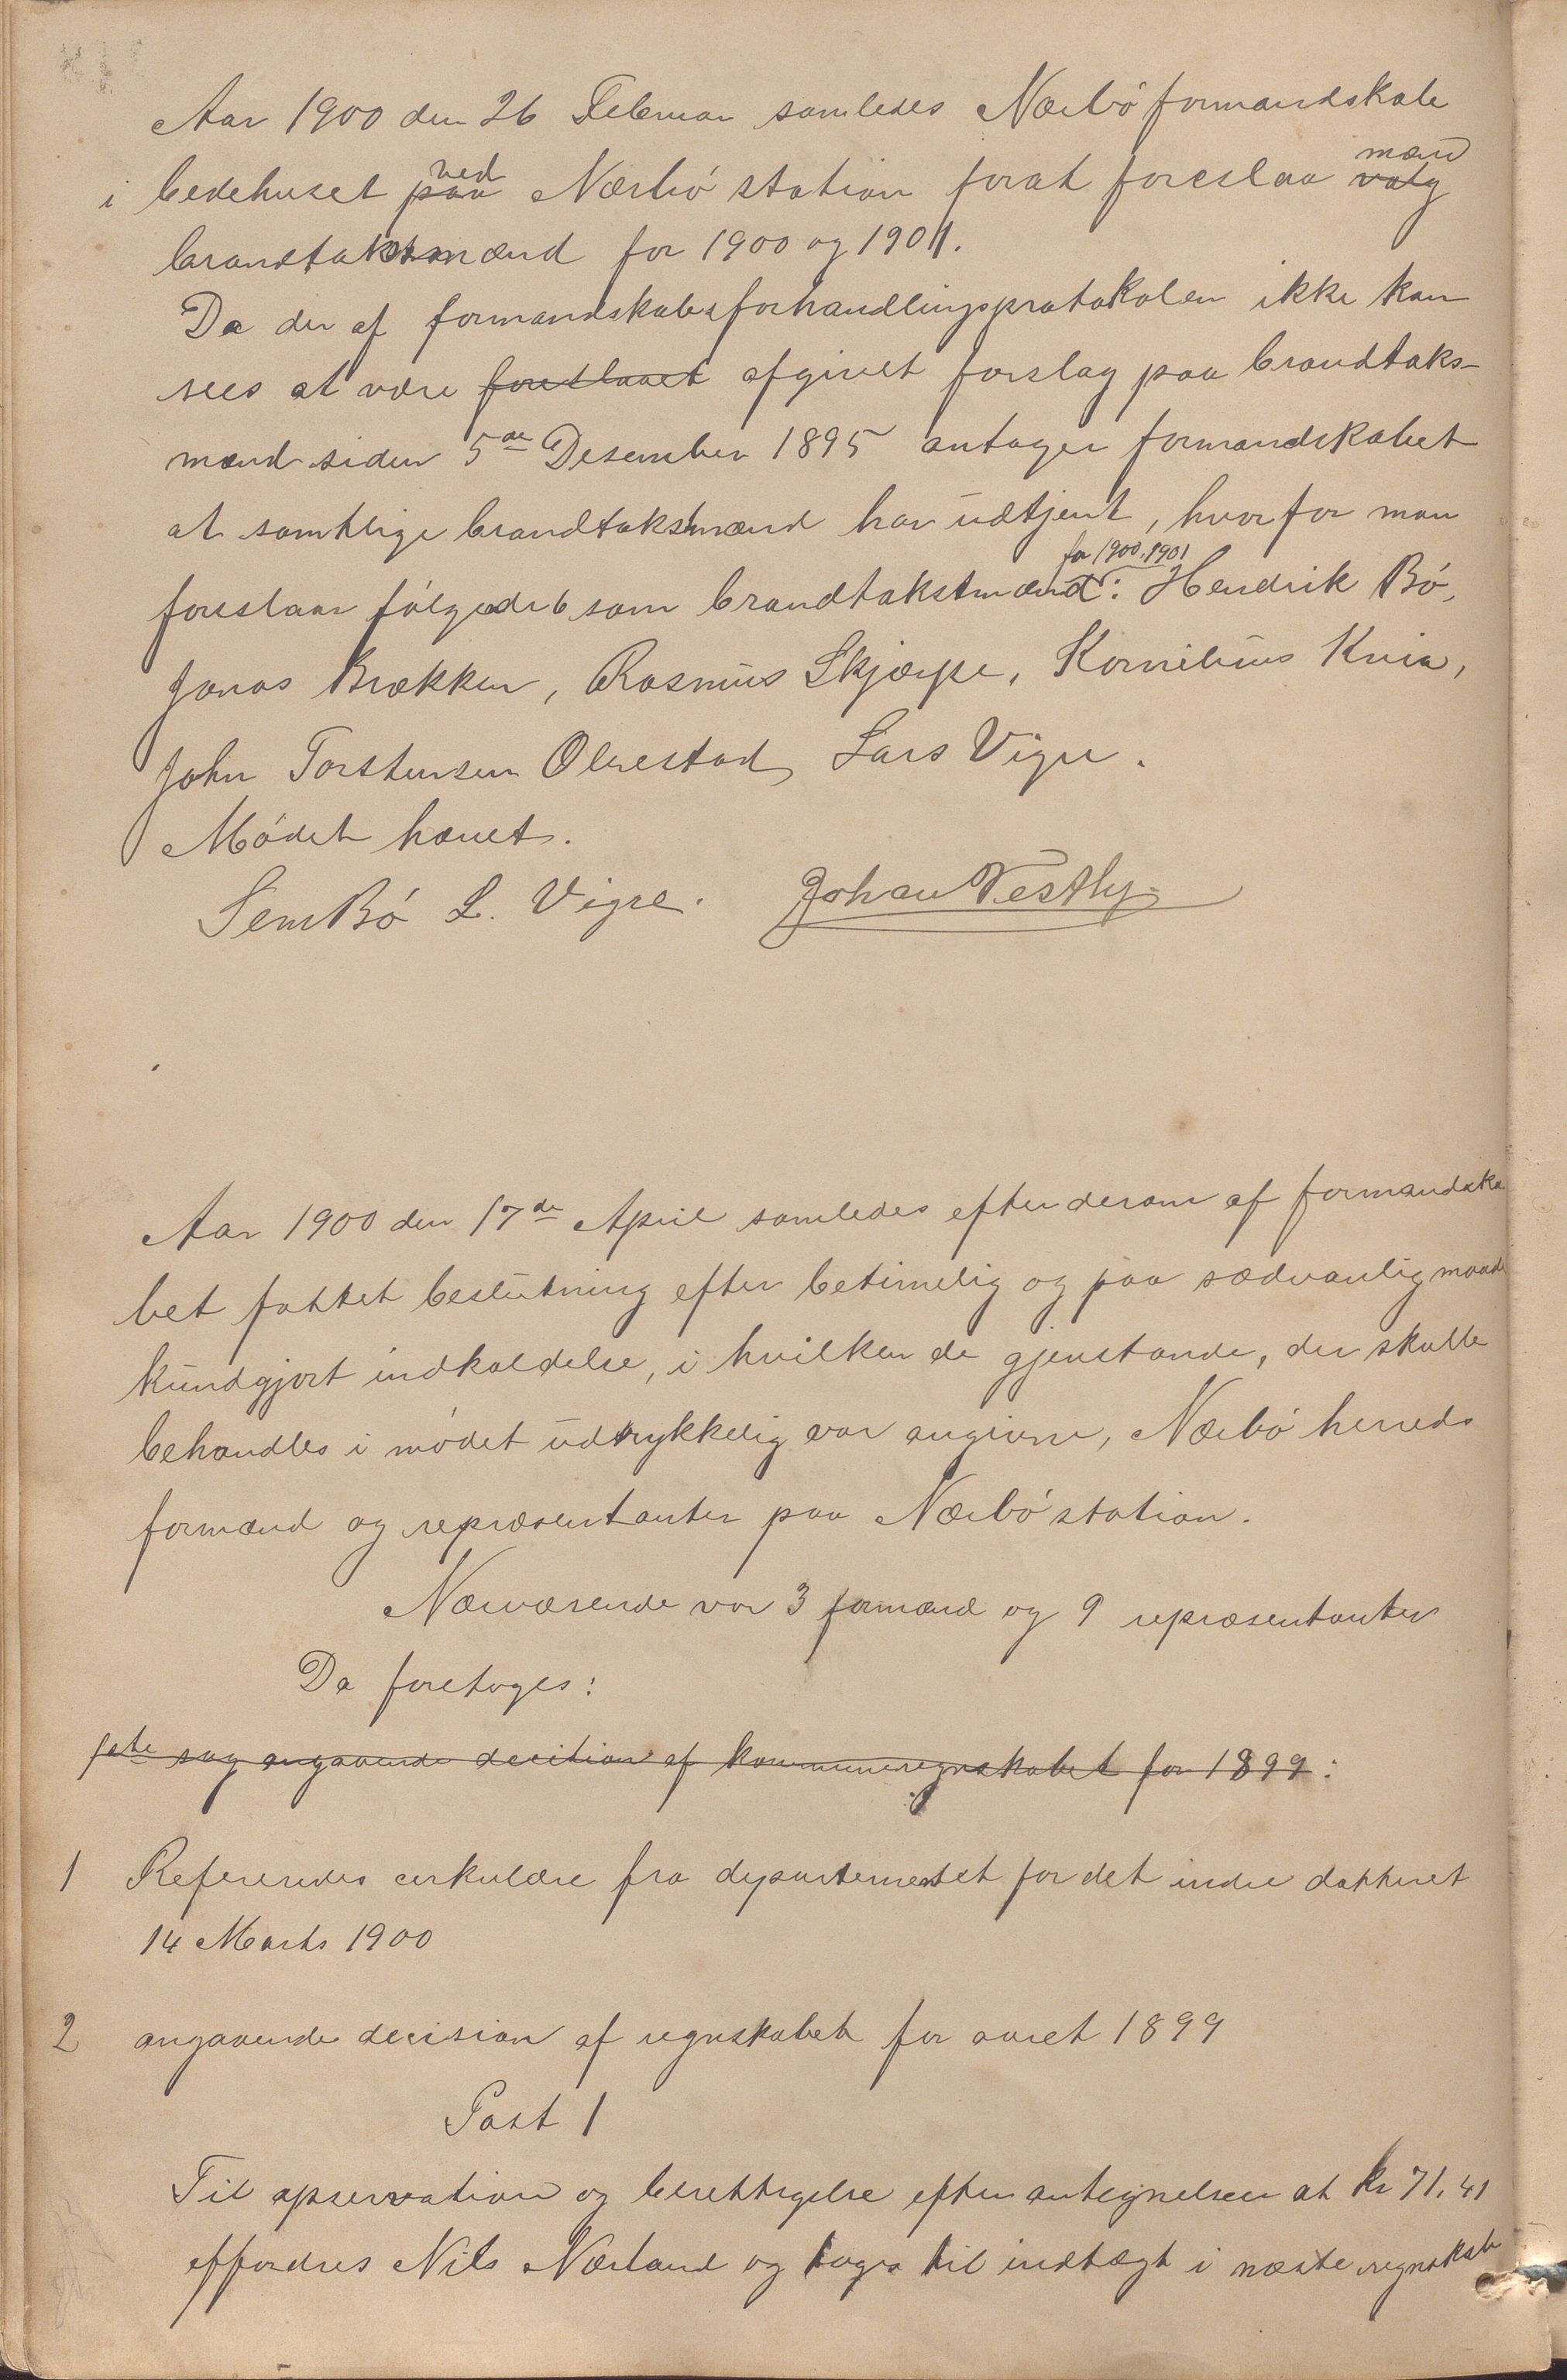 Aar 1900 den 26 Februar samledes Nærbö formandskab
i bedehuset paa ved Nærbö station forat foreslaa valg mænd
brandtakstmænd for 1900 og 1901.
Da der af formandskabsforhandlingsprotokolen ikke kan
sees at være foreslaaet afgivet forslag paa brandtaks-
mænd siden 5de Desember 1895 antager formandskabet
at samtlige brandtakstmænd har udtjent, hvorfor man
foreslaar fölgende 6 som brandtakstmænd for 1900.1901: Hendrik Bö,
Jonas Brækken, Rasmus Skjærpe, Kornelius Kvia,
John Torstensen Obrestad, Lars Vigre.
Mödet hævet.
Sem Bö L. Vigre. Johan Vestly
Aar 1900 den 17de April samledes efter derom af formandska
bet fattet beslutning efter betimelig og paa sædvanlig maade
kundgjort indkaldelse, i hvilken de gjenstande, der skulle
behandles i mödet udtrykkelig var angivne, Nærbö herreds
formænd og repræsentanter paa Nærbö station.
Nærværende var 3 formænd og 9 repræsentanter
Da foretoges:
1ste sag angaaende decition af kommuneregnskabet for 1899:
1 Refereredes cirkulære fra departementet for det indre datteret
14 Marts 1900
2 angaaende decision af regnskabet for aaret 1899
Post 1
Til opservation og berettigelse efter antegnelsen at kr 71,41
affordres Nils Nærland og tages til indtægt i næste regnskab